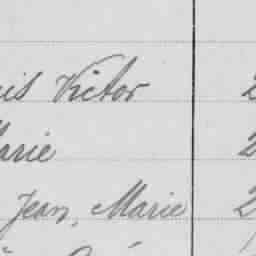 is Victor 2
arie 2
Jean, Marie 2